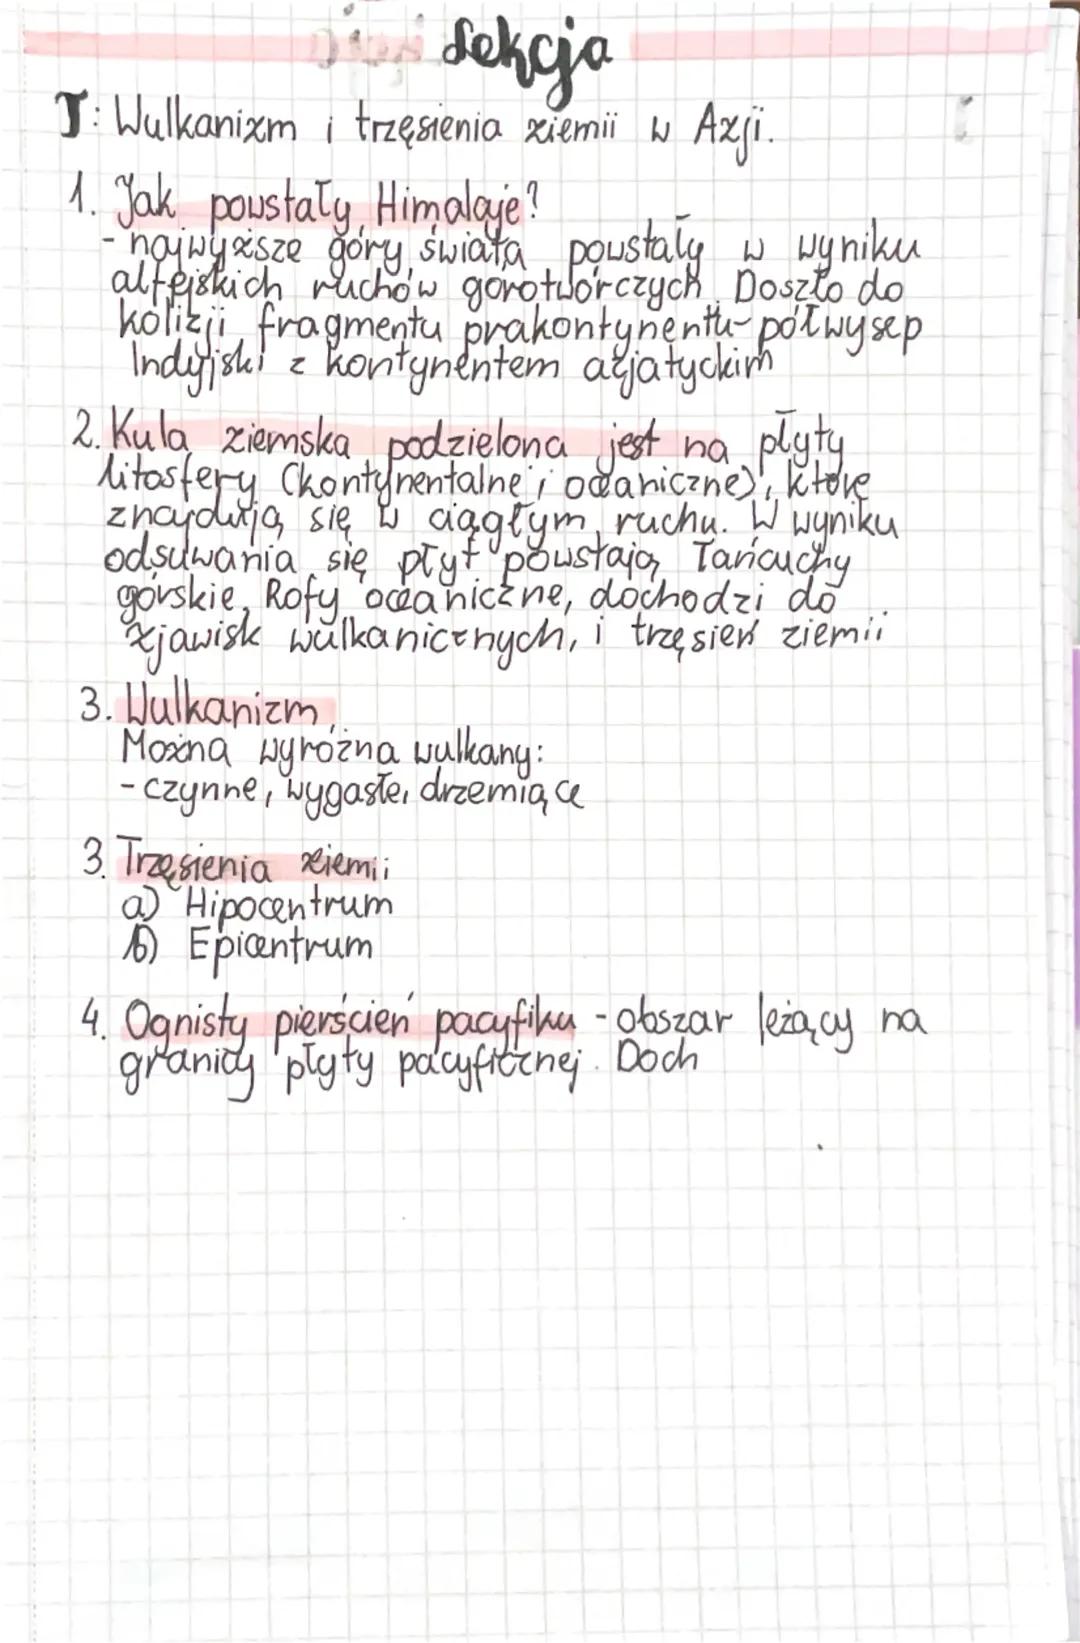 Lekcja
T: Wulkanizm i trzęsienia ziemii w Azji.
1. Jak powstały Himalaje?
- najwyższe góry świata powstały w wyniku
alpejskich ruchów górotwórczych. Doszło do
kolizji fragmentu prakontynentu - półwysep
Indyjski z kontynentem azjatyckim
2. Kula ziemska podzielona jest na płyty
litosfery (kontynentalne i oceaniczne), które
znajdują się w ciągłym ruchu. W wyniku
odsuwania się płyt powstają łańcuchy
górskie, Rofy oceaniczne, dochodzi do
zjawisk wulkanicznych, i trzęsień ziemii
3. Wulkanizm
Można wyróżna wulkany:
- czynne, wygasłe, drzemiące
3. Trzęsienia ziemii
a) Hipocentrum
b) Epicentrum
4. Ognisty pierścień pacyfiku - obszar leżący na
granicy płyty pacyficznej. Doch